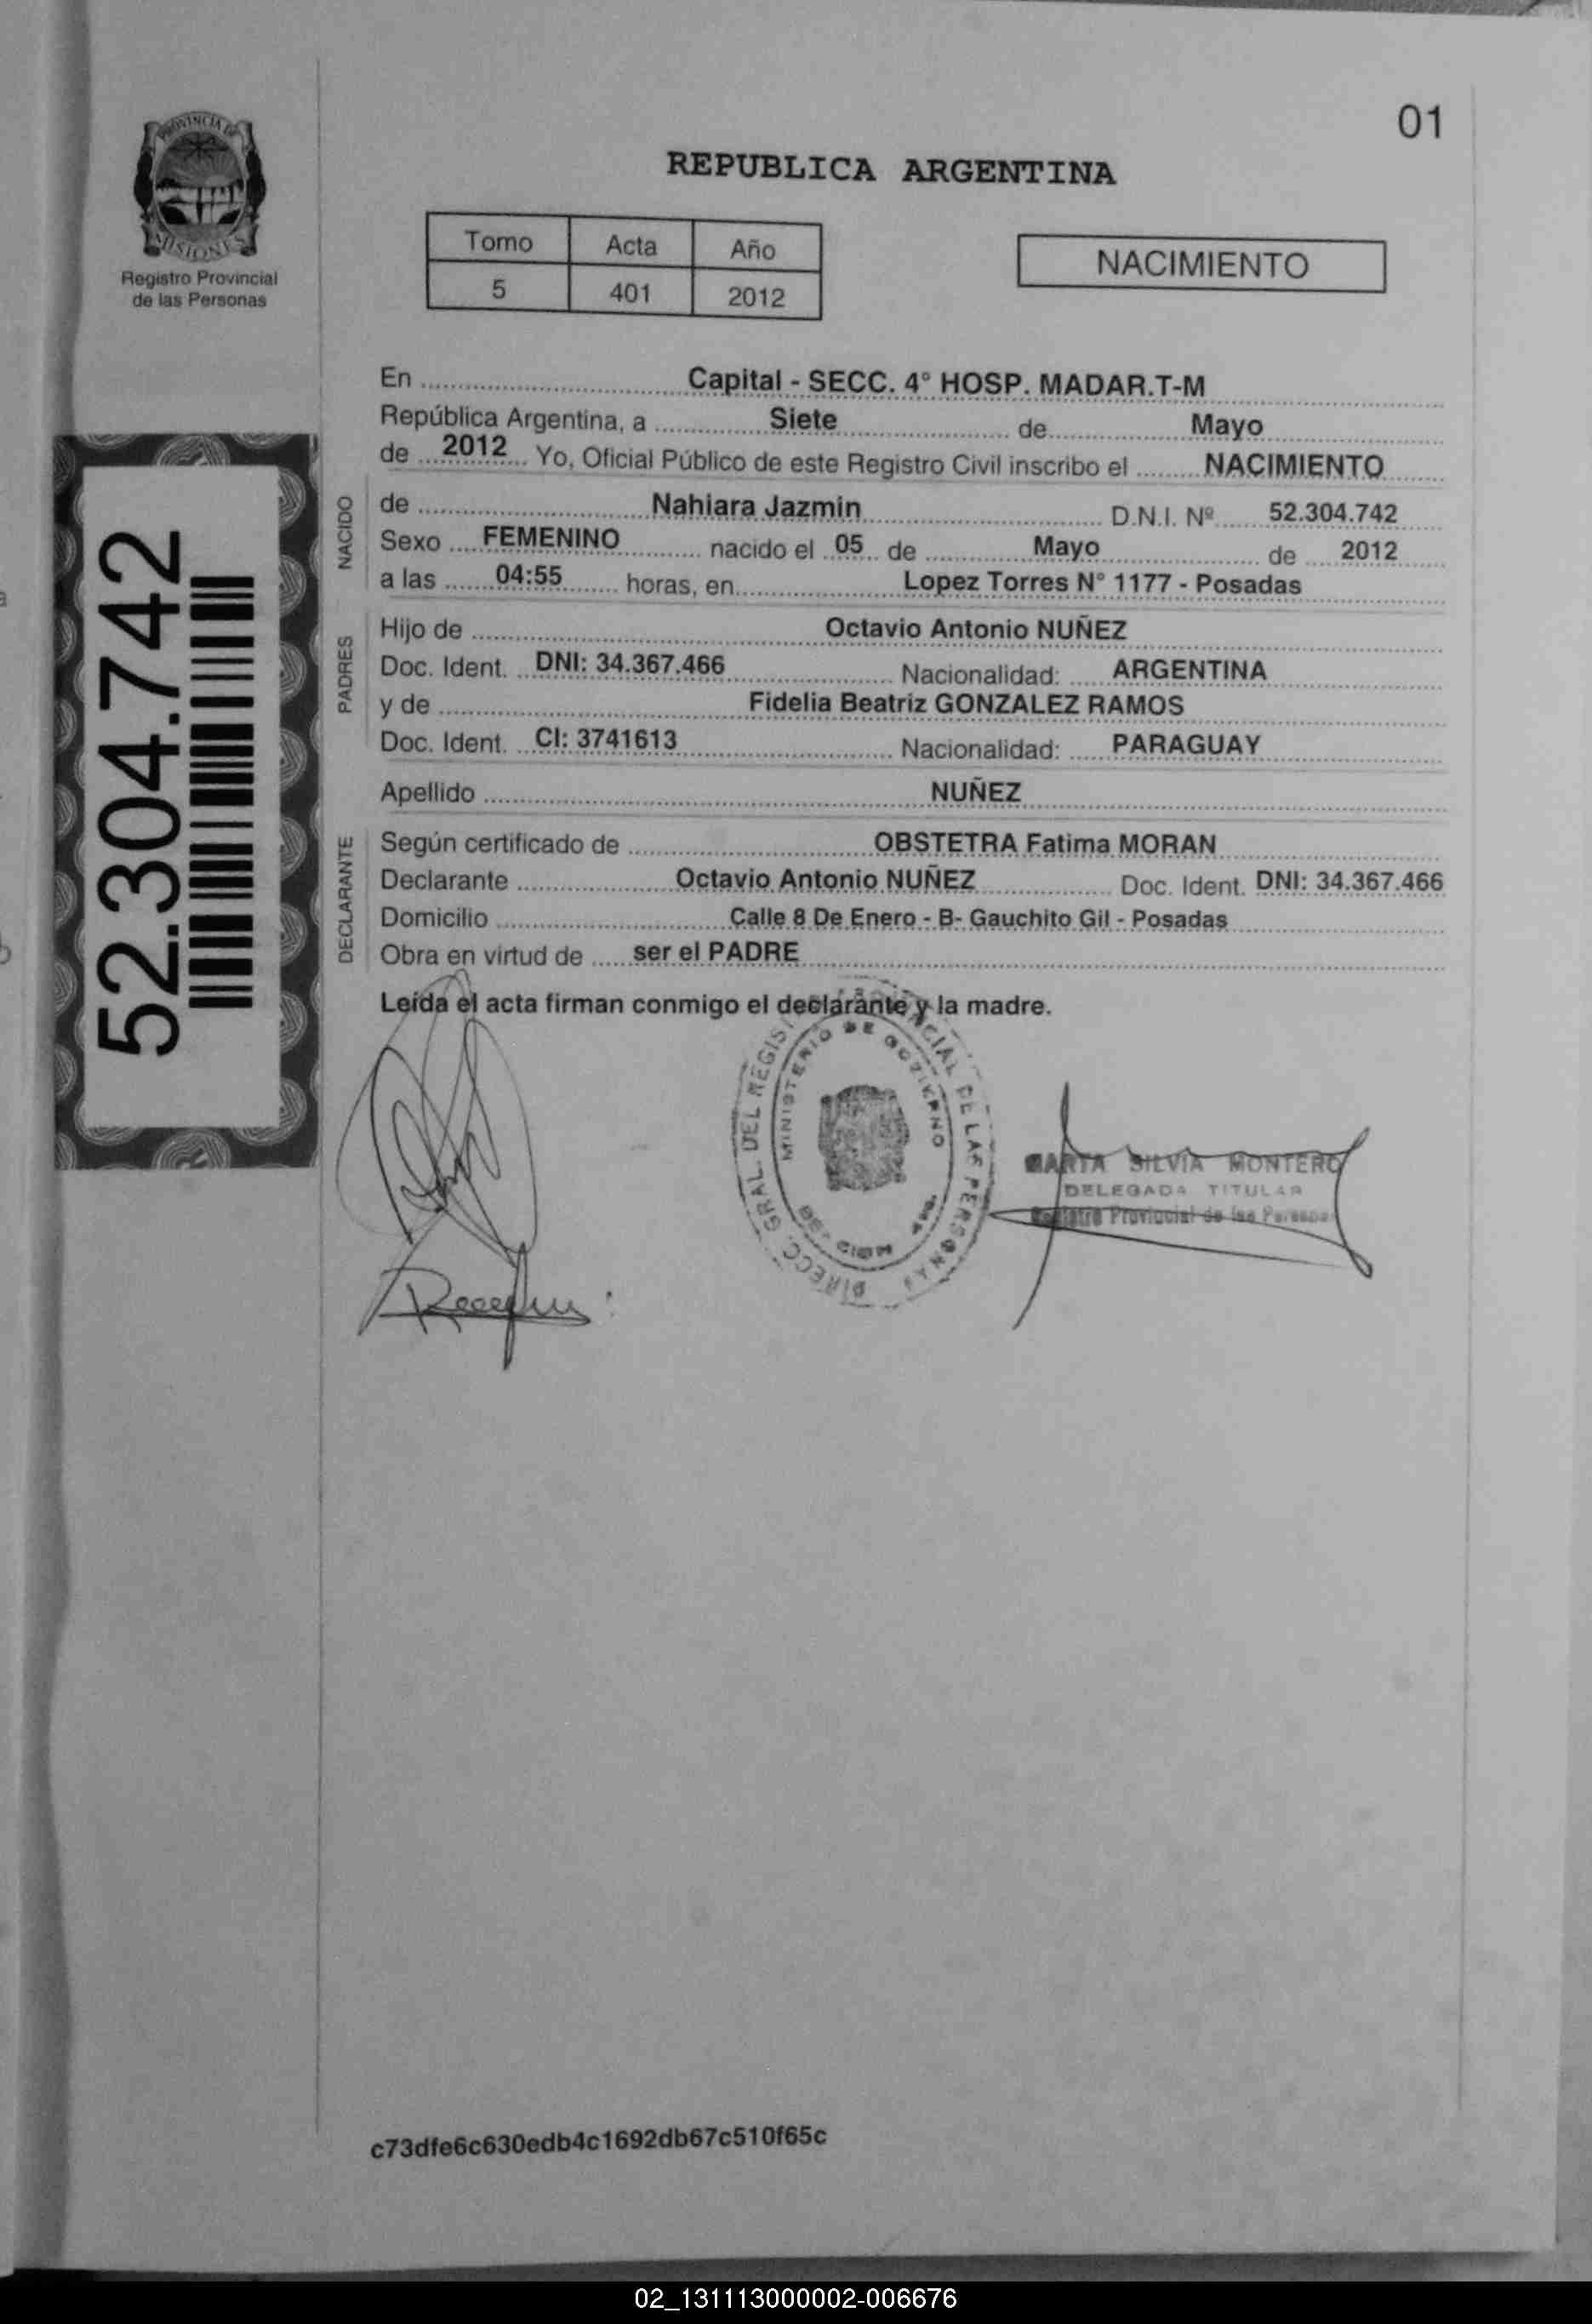 01
PROVINCIA DE
MISIONES
Registro Provincial
de las Personas
REPUBLICA ARGENTINA
Tomo Acta Año
5 401 2012
NACIMIENTO
En Capital - SECC. 4° HOSP. MADAR.T-M
República Argentina, a Siete de Mayo
de 2012 Yo, Oficial Público de este Registro Civil inscribo el NACIMIENTO
NACIDO
de Nahiara Jazmin D.N.I. Nº 52.304.742
Sexo FEMENINO nacido el 05 de Mayo de 2012
a las 04:55 horas, en Lopez Torres N° 1177 - Posadas
PADRES
Hijo de Octavio Antonio NUÑEZ
Doc. Ident. DNI: 34.367.466 Nacionalidad: ARGENTINA
y de Fidelia Beatriz GONZALEZ RAMOS
Doc. Ident. CI: 3741613 Nacionalidad: PARAGUAY
Apellido NUÑEZ
DECLARANTE
Según certificado de OBSTETRA Fatima MORAN
Declarante Octavio Antonio NUÑEZ Doc. Ident. DNI: 34.367.466
Domicilio Calle 8 De Enero - B- Gauchito Gil - Posadas
Obra en virtud de ser el PADRE
Leída el acta firman conmigo el declarante y la madre.
52.304.742
DIRECC. GRAL. DEL REGIS CIAL DE LAS PERSONAS
MINISTERIO DE GOBIERNO
MARTA SILVIA MONTERO
DELEGADA TITULAR
Registro Provincial de las Personas
c73dfe6c630edb4c1692db67c510f65c
02_131113000002-006676